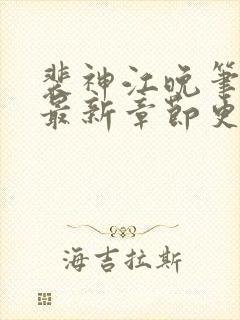 裴神江晚笔
最新章节更
海吉拉斯